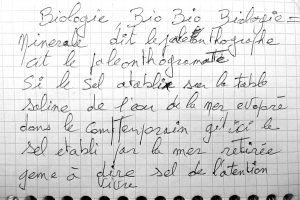 Biologie, Bio Bio Biologie =
Minerale dit le paleonthographe
cit le paleonthogramate
Si le Sel atabli sur la table
saline de l'eau de la mer evaporé
dans le comptemprain git ici le
sel etabli par la mer retirée
geme à dire sel de l'atention
vivre